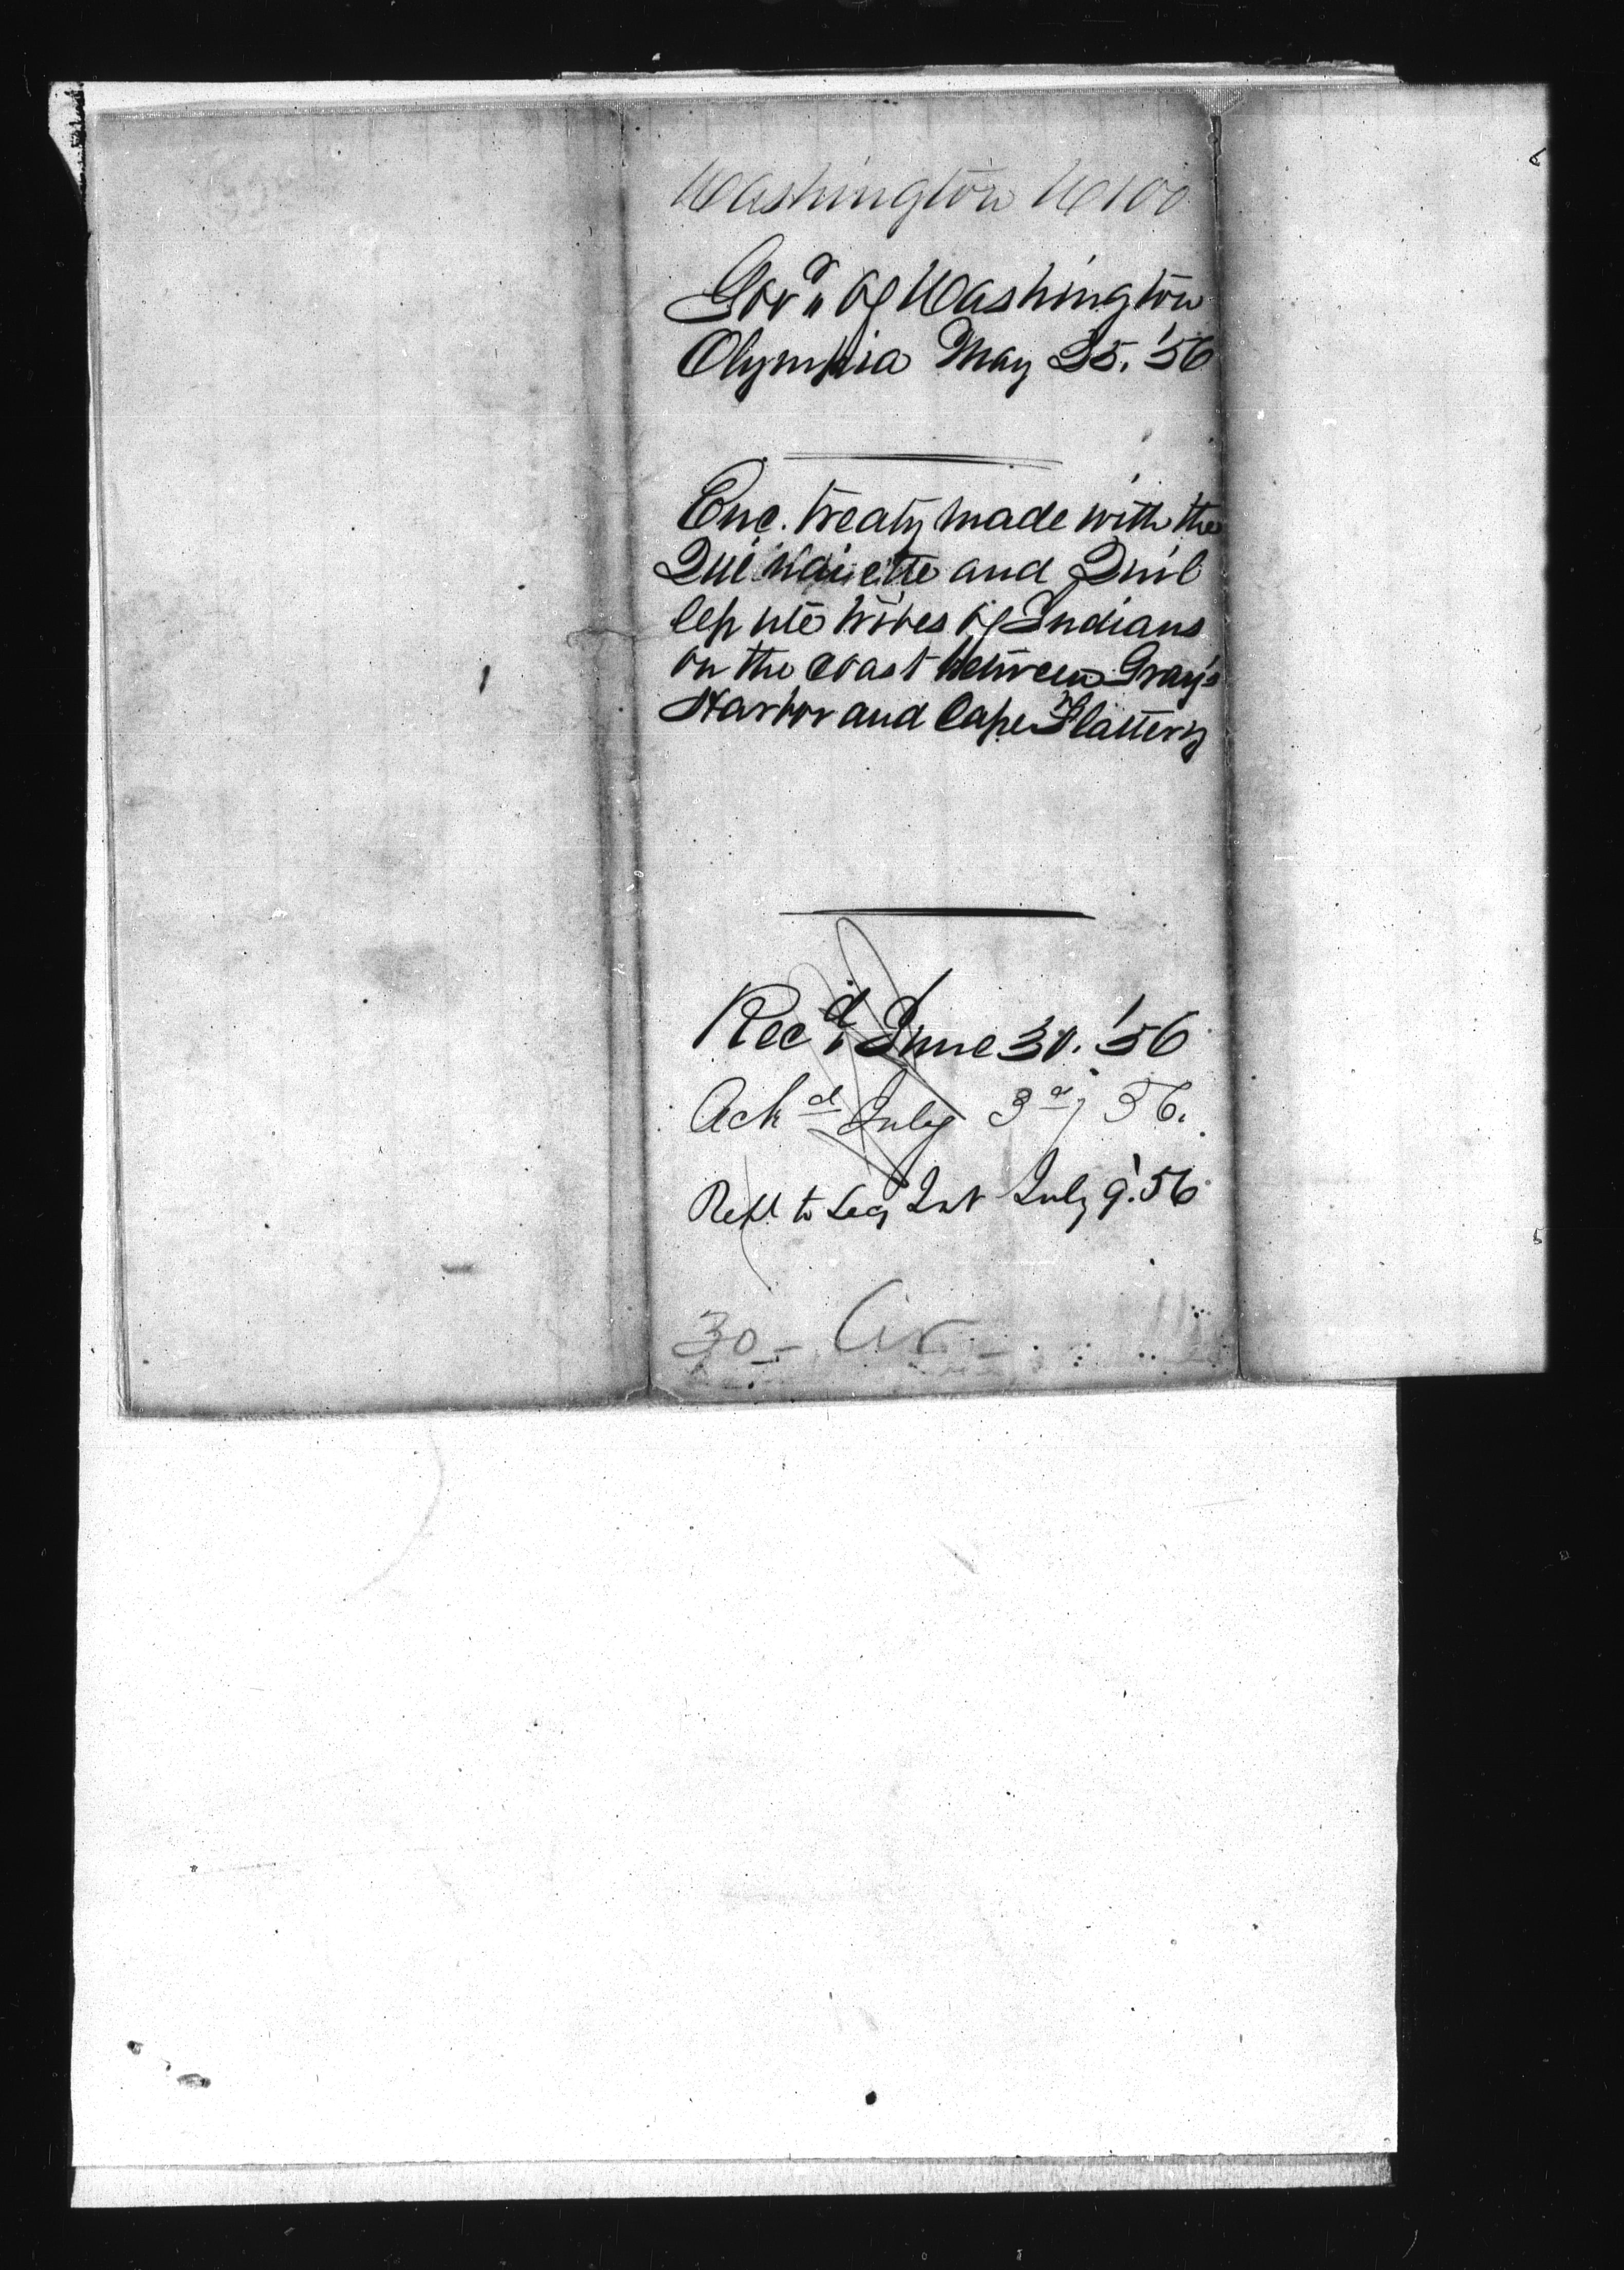 Washington W100
Govr. of Washington
Olympia May 25. '56
Enc. treaty made with the
Quinaiette and Quil
leyute tribes of Indians
on the coast between Gray's
Harbor and Cape Flattery
Recd. June 30. '56
Ackd July 3d, 56.
Refd to Secy Int July 9. '56
30